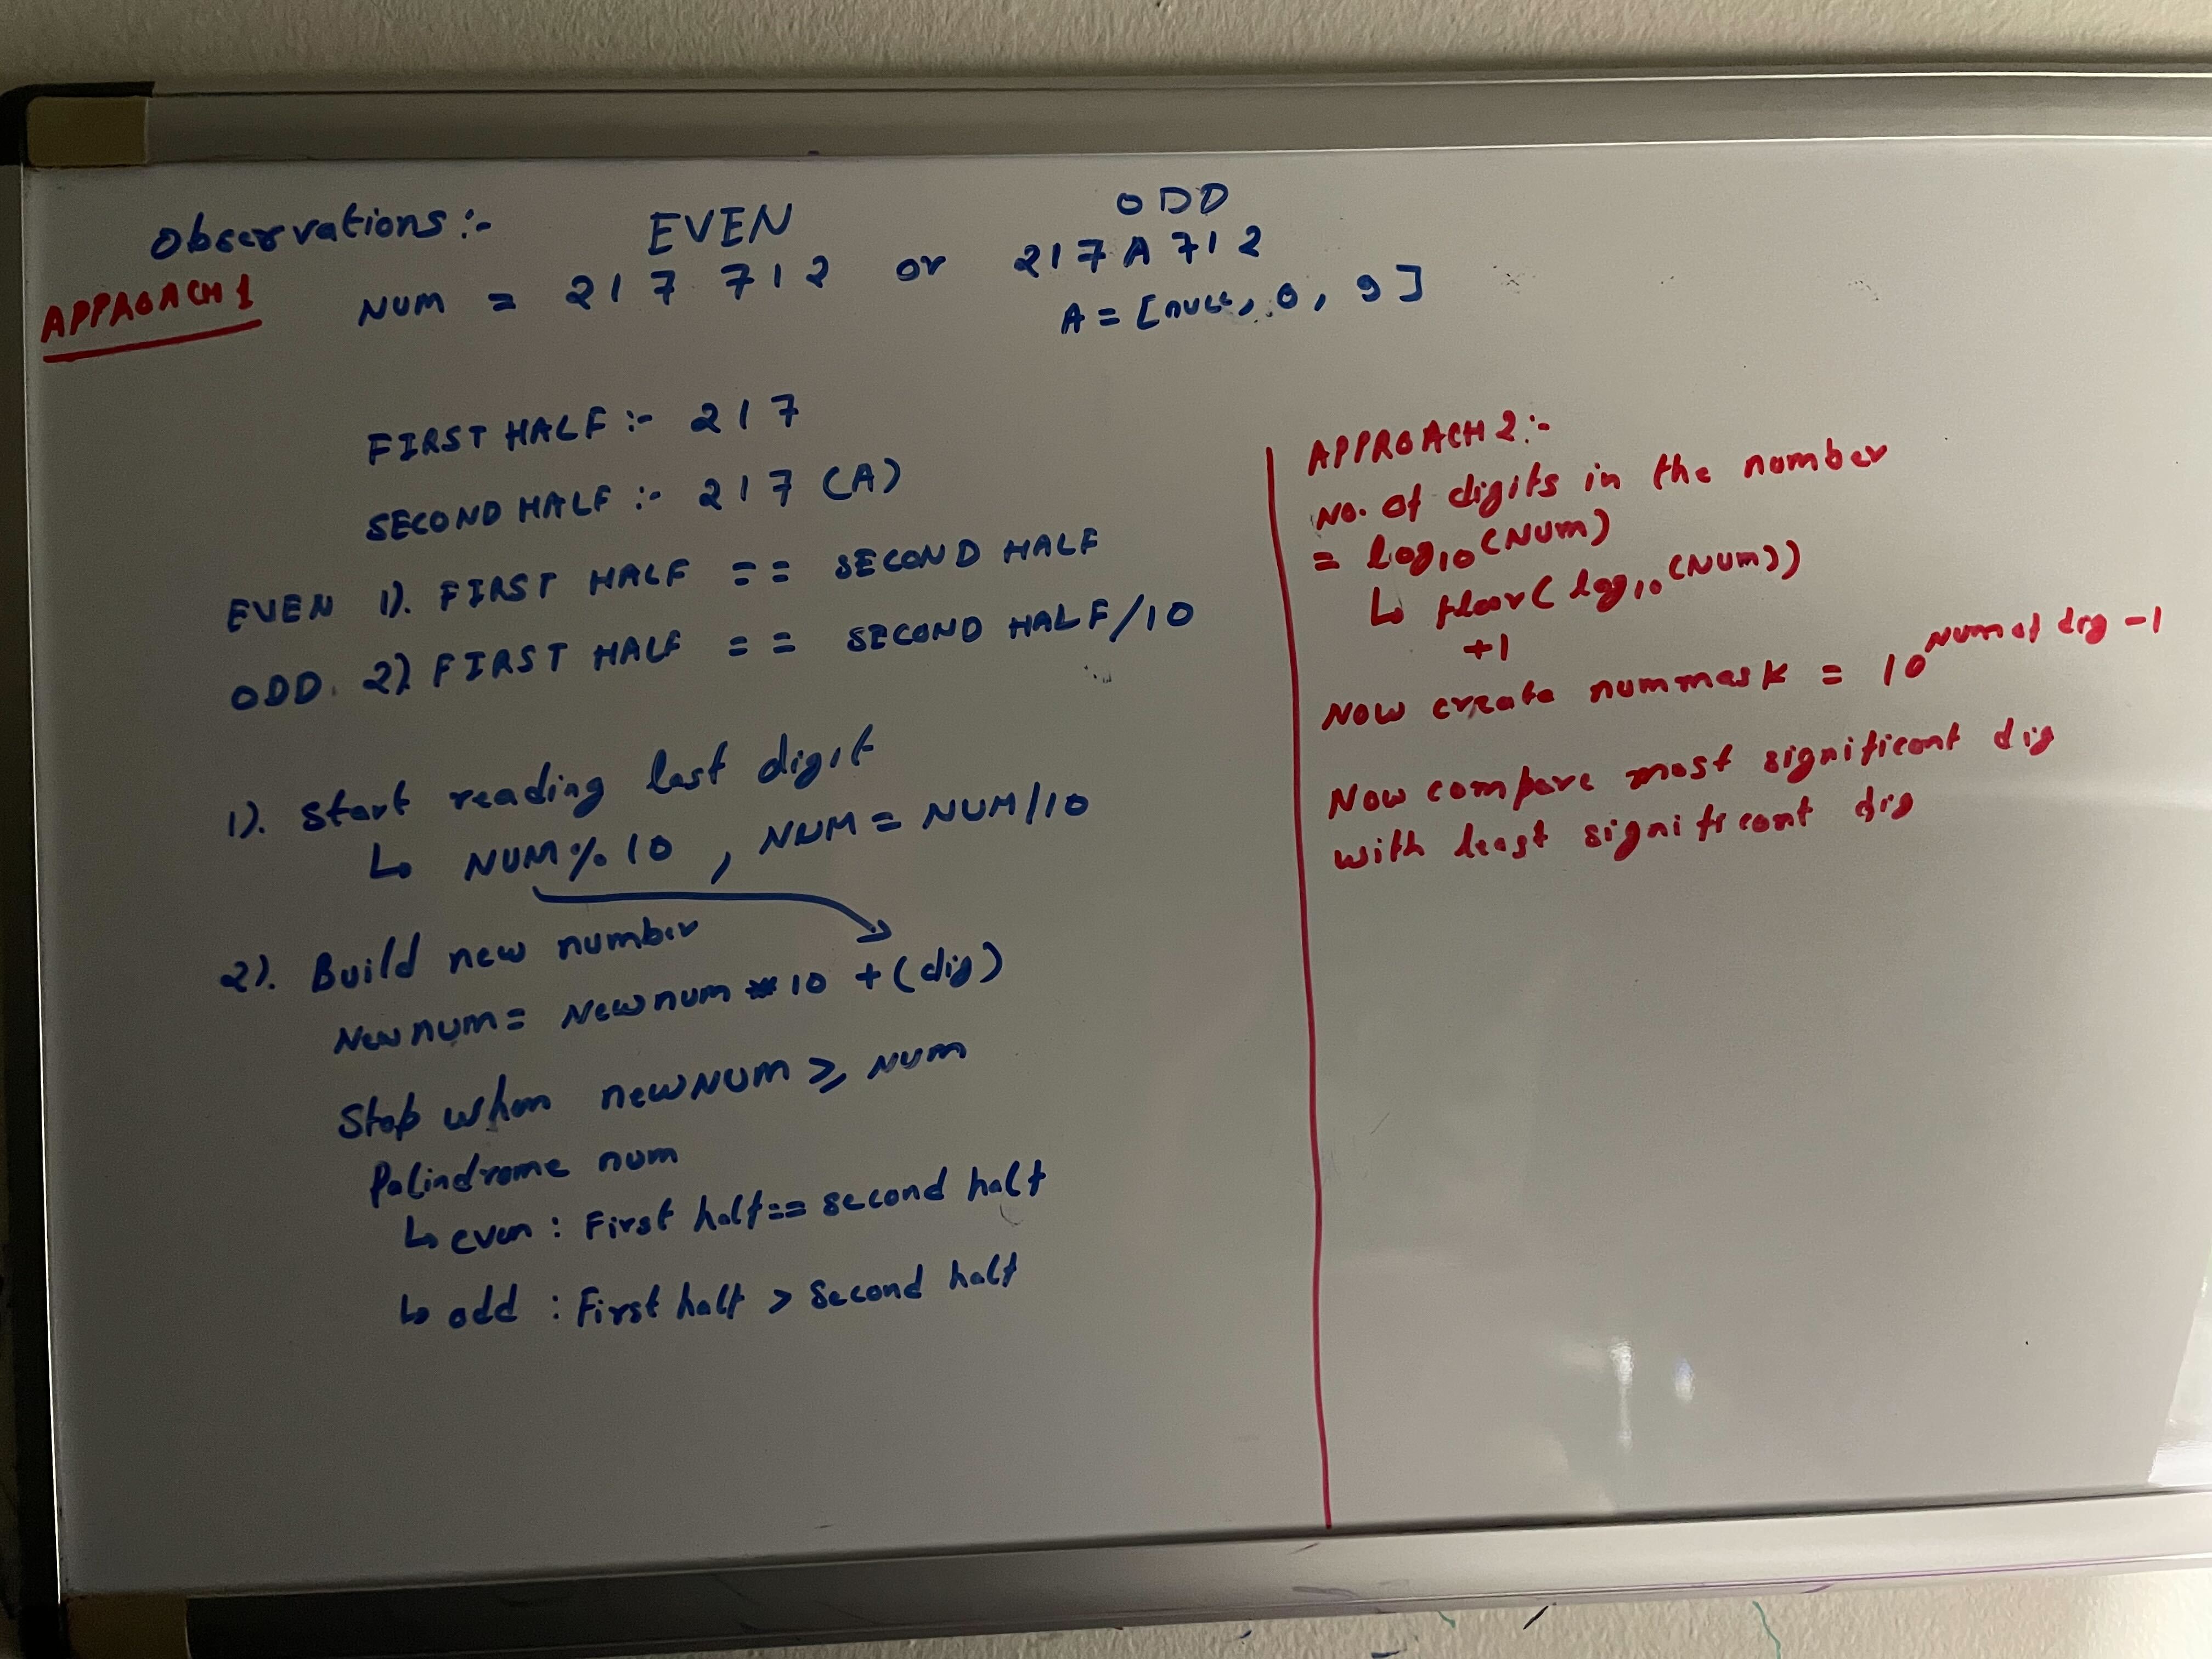 Observations :-
EVEN
ODD
APPROACH 1
NUM = 217 712 or 217A712
A = [null, 0, 9]
FIRST HALF :- 217
SECOND HALF :- 217 (A)
EVEN 1). FIRST HALF == SECOND HALF
ODD. 2) FIRST HALF == SECOND HALF/10
1). Start reading last digit
↳ NUM % 10 , NUM = NUM/10
2). Build new number
New num = New num * 10 + (dig)
Stop when newNUM ≥ NUM
Palindrome num
↳ even : First half == second half
↳ odd : First half > Second half
APPROACH 2 :-
No. of digits in the number
= log10 (NUM)
↳ floor( log10 (NUM))
+1
Now create nummask = 10^Num of dig -1
Now compare most significant dig
with least significant dig